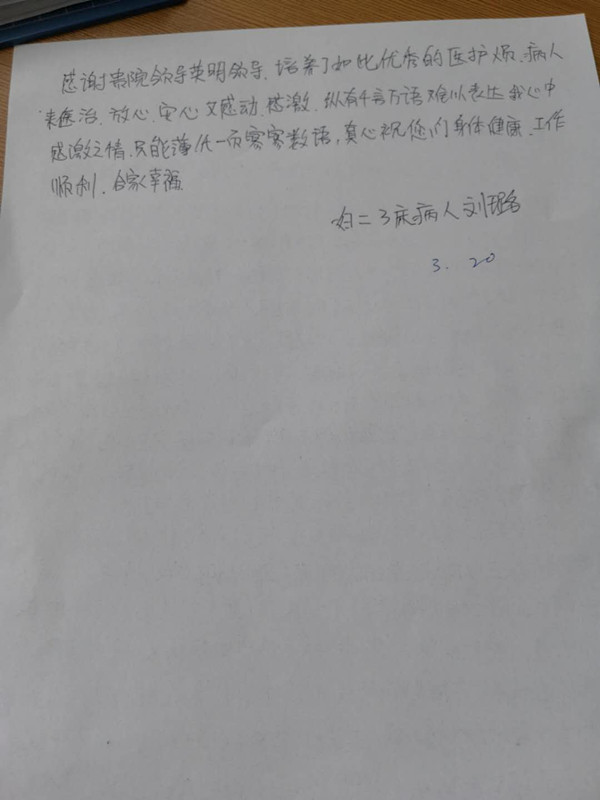 感谢贵院领导英明领导、培养了如此优秀的医护人员、病人
来医治、放心、安心又感动、感激、纵有千言万语难以表达我心中
感激之情、只能薄礼一而寥寥数语，真心祝您们身体健康、工作
顺利、合家幸福
妇二3床病人刘
3. 20